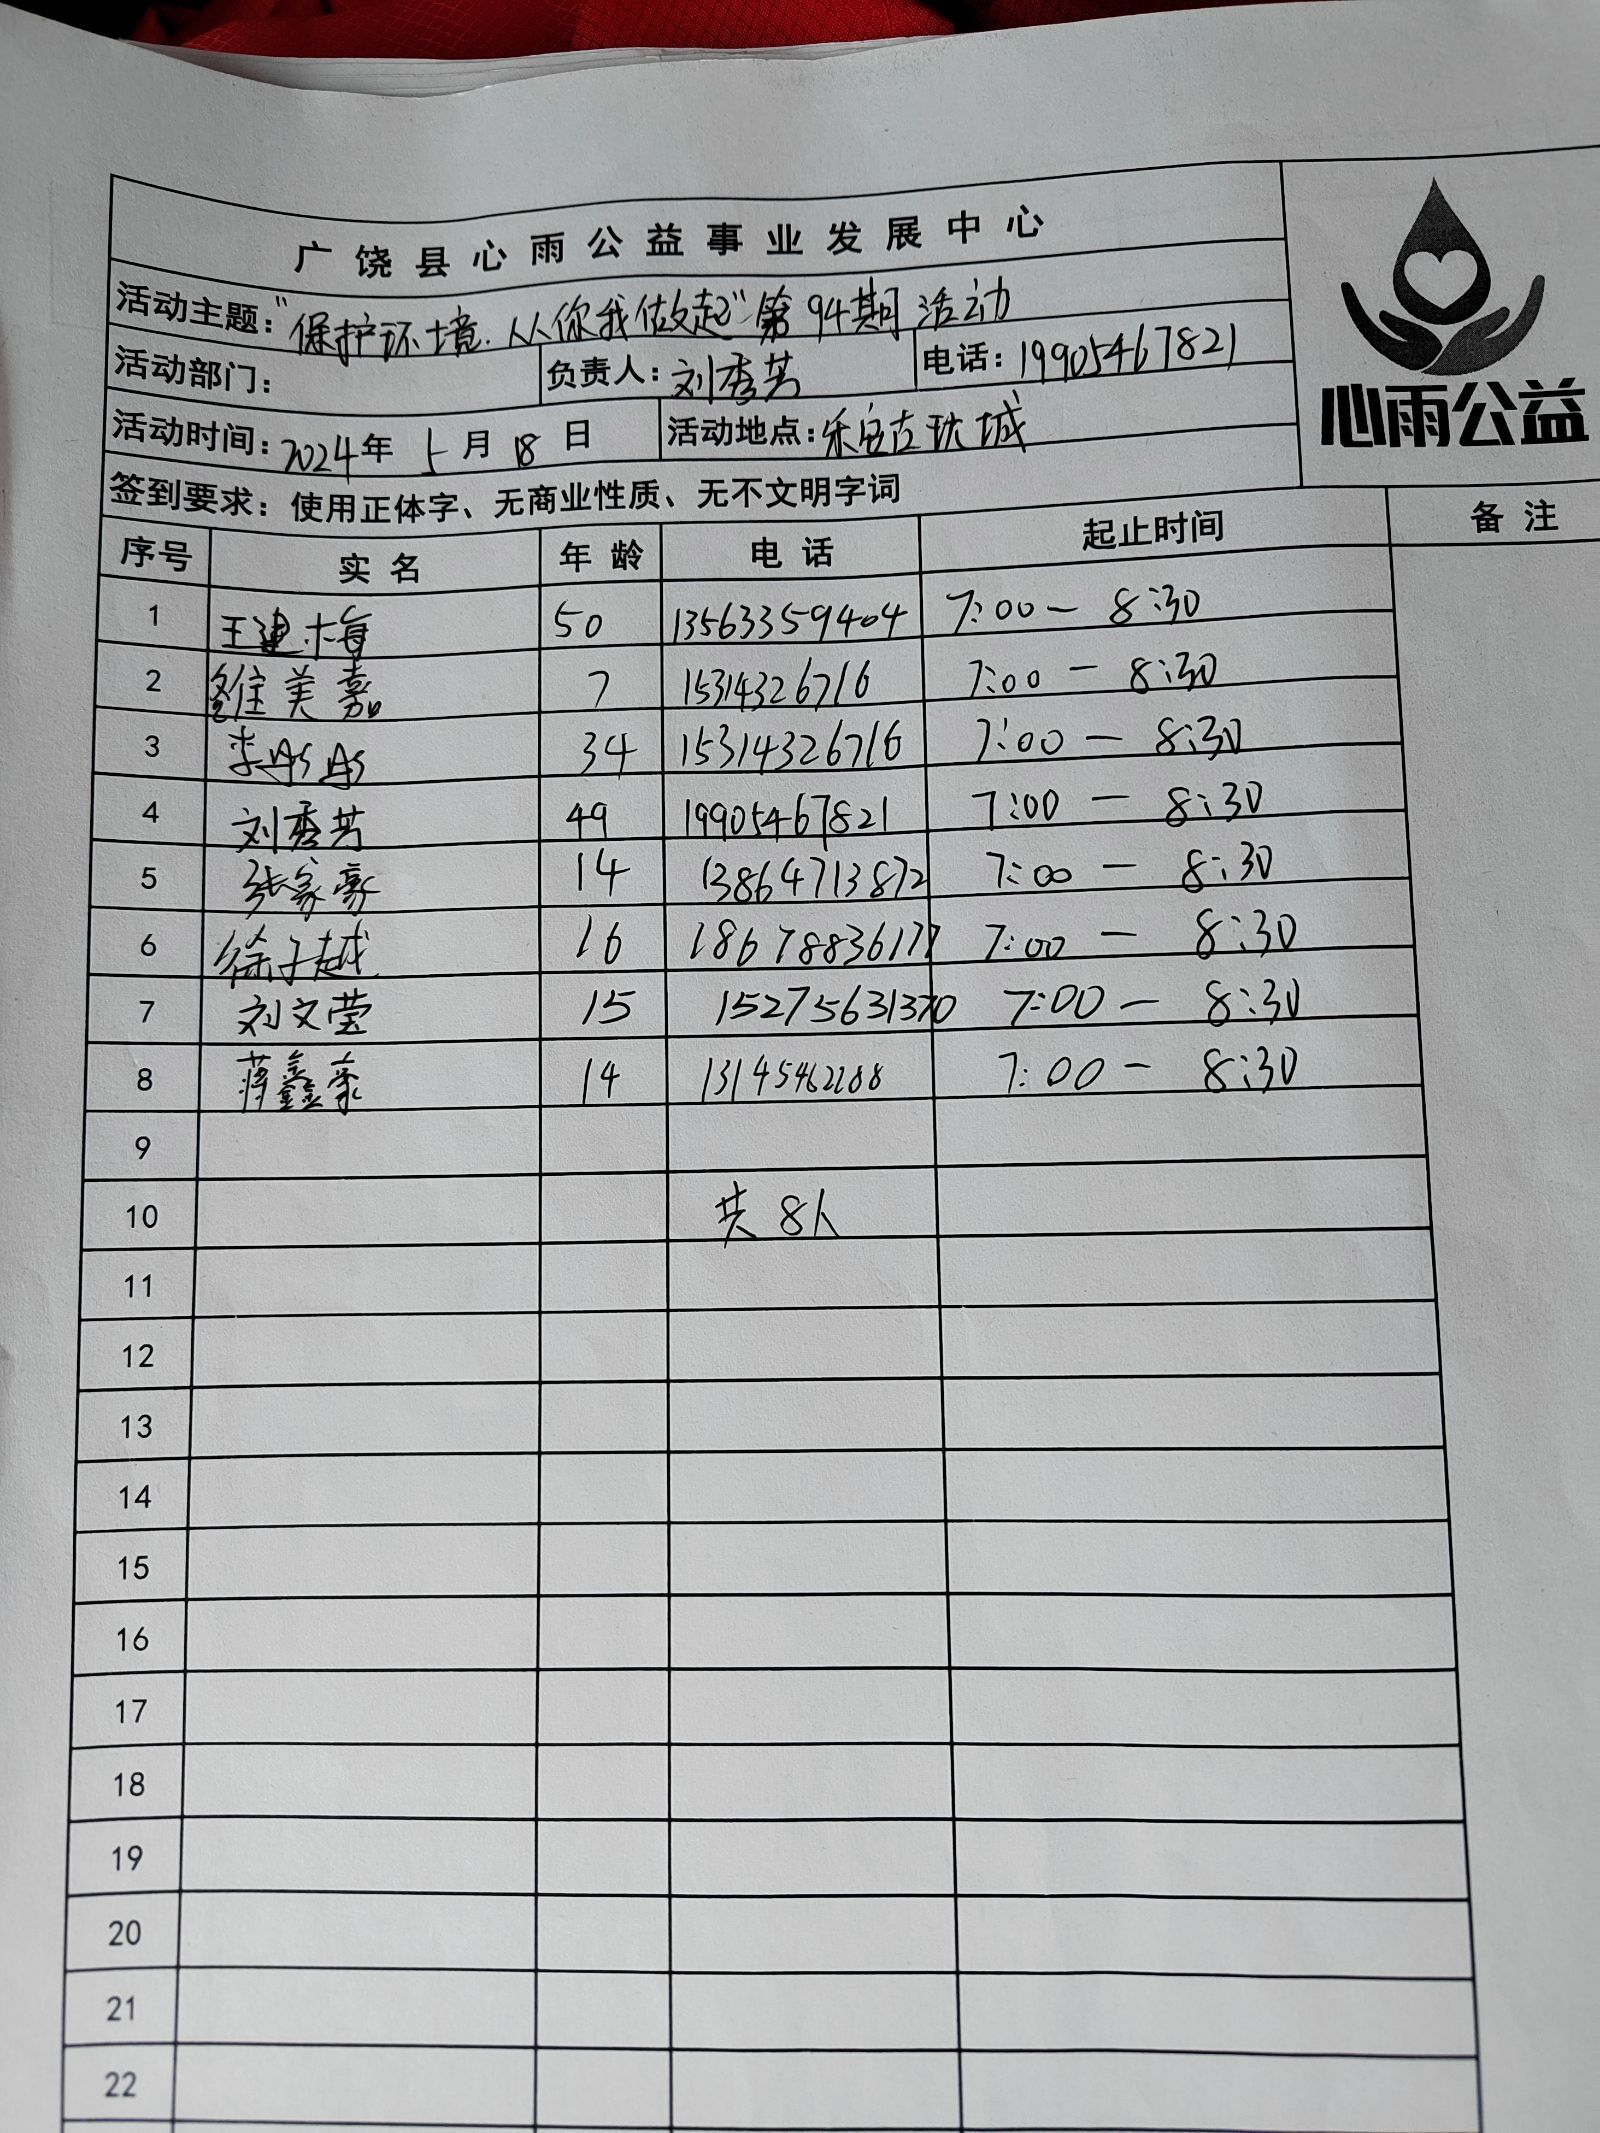 广饶县心雨公益事业发展中心
活动主题:"保护环境.从你我做起"第94期活动
活动部门: 负责人:刘秀芳 电话:19905467821
活动时间:2024年5月18日 活动地点:乐安古玩城
心雨公益
签到要求:使用正体字、无商业性质、无不文明字词
序号 实名 年龄 电话 起止时间 备注
1 王建梅 50 13563359404 7:00-8:30
2 美嘉 7 15314326716 7:00-8:30
3 李彤彤 34 15314326716 7:00-8:30
4 刘秀芳 49 19905467821 7:00-8:30
5 张家豪 14 13864713872 7:00-8:30
6 徐子越 16 7:00-8:30
7 刘文莹 15 15275631370 7:00-8:30
8 蒋鑫豪 14 7:00-8:30
9
10 共8人
11
12
13
14
15
16
17
18
19
20
21
22